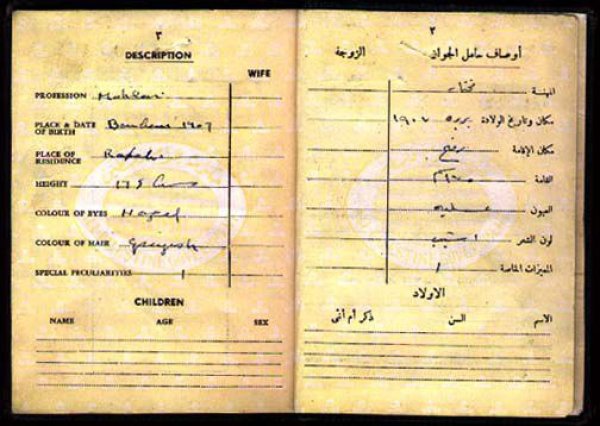 ٣
DESCRIPTION
WIFE
PROFESSION
PLACE & DATE OF BIRTH 1907
PLACE OF RESIDENCE
HEIGHT 175 cms
COLOUR OF EYES Hazel
COLOUR OF HAIR Greyish
SPECIAL PECULIARITIES /
CHILDREN
NAME AGE SEX
٢
أوصاف حامل الجواز الزوجة
المهنة مختار
مكان وتاريخ الولادة بربره ١٩٠٧
مكان الإقامة رفح
القامة
العيون عسليه
لون الشعر اشيب
الميزات الخاصة /
الاولاد
الاسم السن ذكر أم أنثى